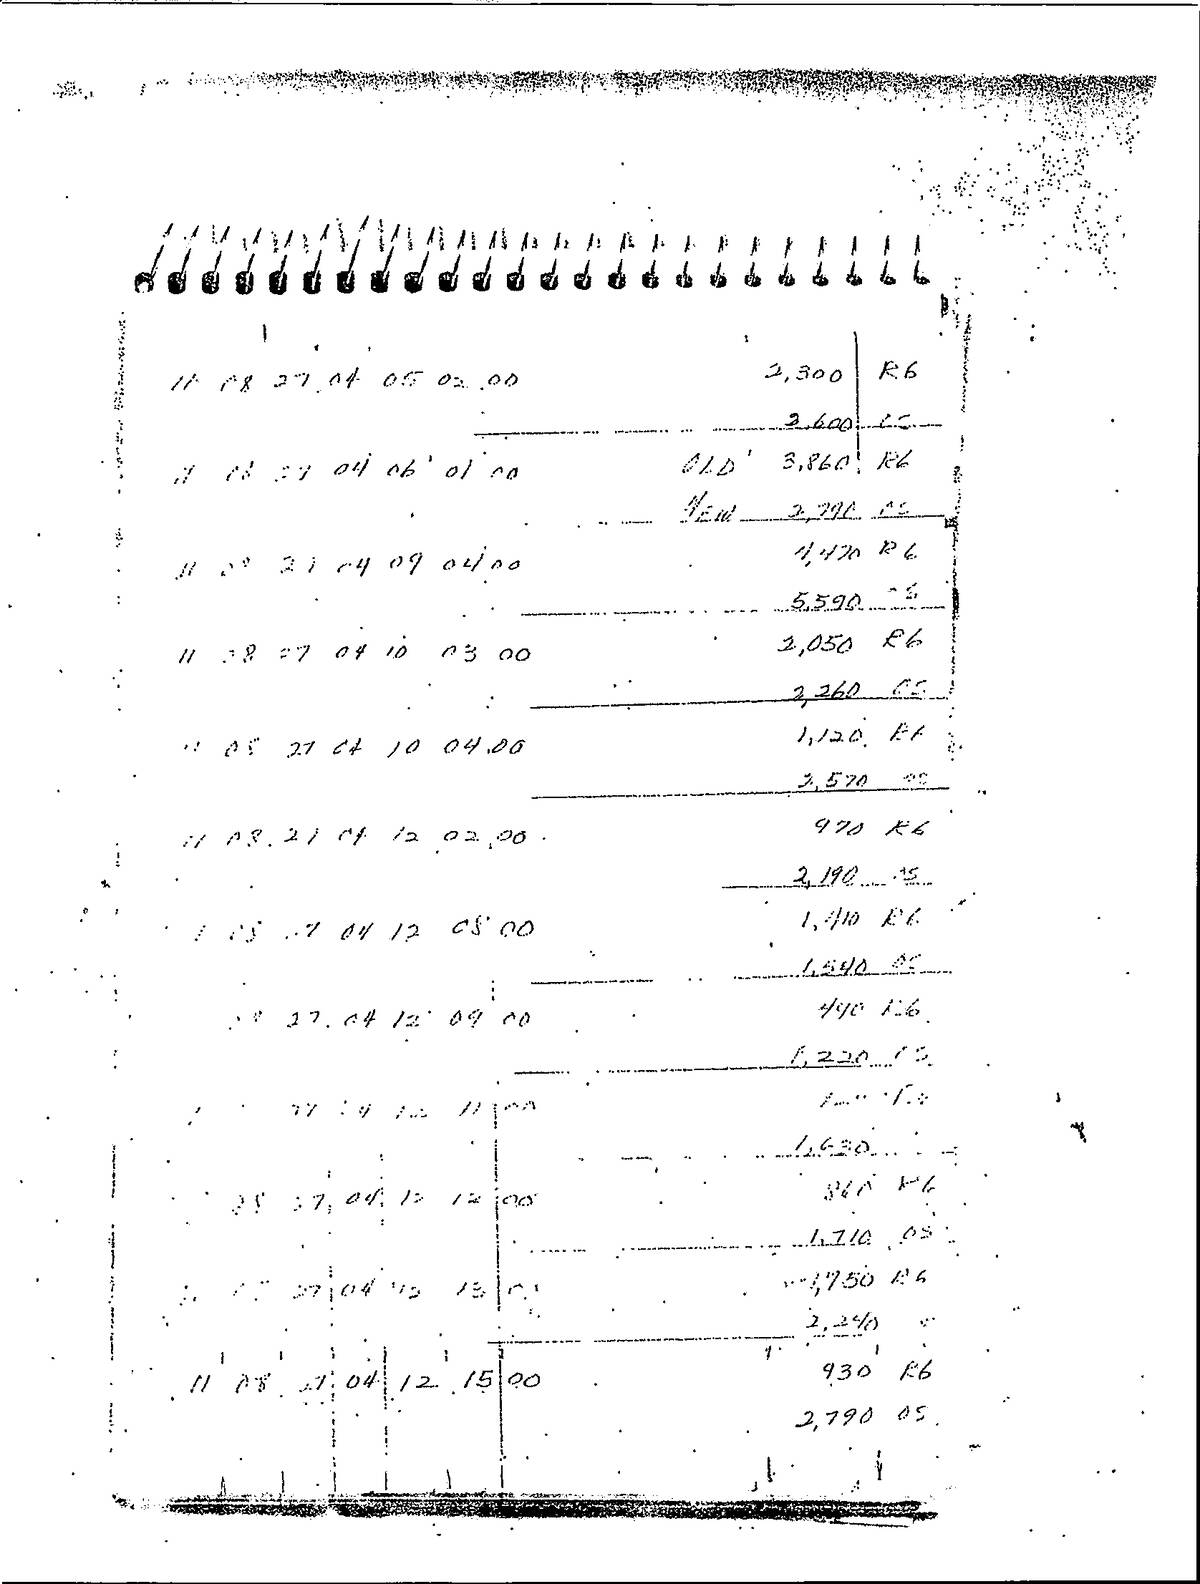 11 08 27 04 05 02 00 2,300 R6
2,600 OS
11 08 27 04 06 01 00 OLD 3,860 R6
NEW 2,790 OS
11 08 27 04 09 04 00 4,470 R6
5,590 OS
11 08 27 04 10 03 00 2,050 R6
2,260 OS
11 08 27 04 10 04 00 1,120 R6
2,570 OS
11 08 27 04 12 02 00 970 R6
2,190 OS
08 27 04 12 08 00 1,410 R6
1,540 OS
08 27 04 12 09 00 440 R6
1,220 OS
27 04 12 11 00
1,630
08 27 04 12 12 00 860 R6
1,710 OS
27 04 12 13 1,750 R6
2,240
11 08 27 04 12 15 00 930 R6
2,790 OS